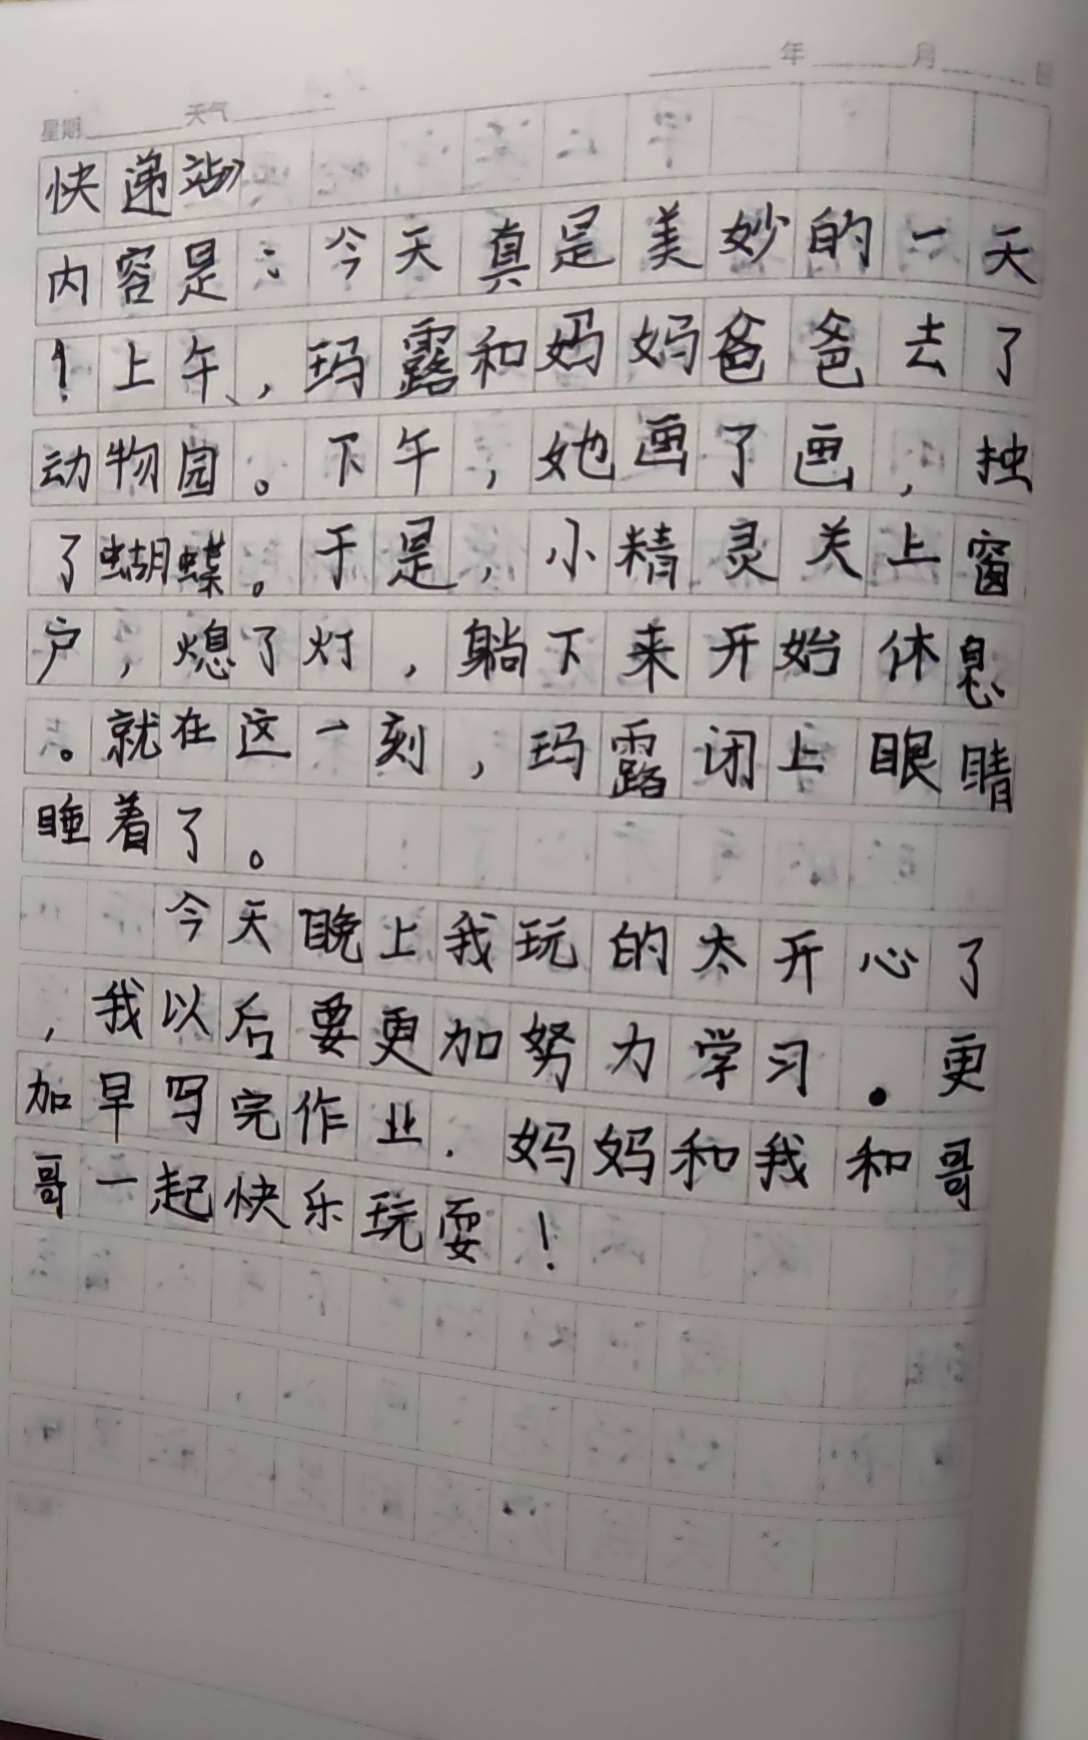 年 月 日
星期 天气
快递站》
内容是：今天真是美妙的一天
！上午，玛露和妈妈爸爸去了
动物园。下午，她画了画，
了蝴蝶。于是，小精灵关上窗
户，熄了灯，躺下来开始休息
。就在这一刻，玛露闭上眼睛
睡着了。
今天晚上我玩的太开心了
，我以后要更加努力学习。更
加早写完作业．妈妈和我和哥
哥一起快乐玩耍！